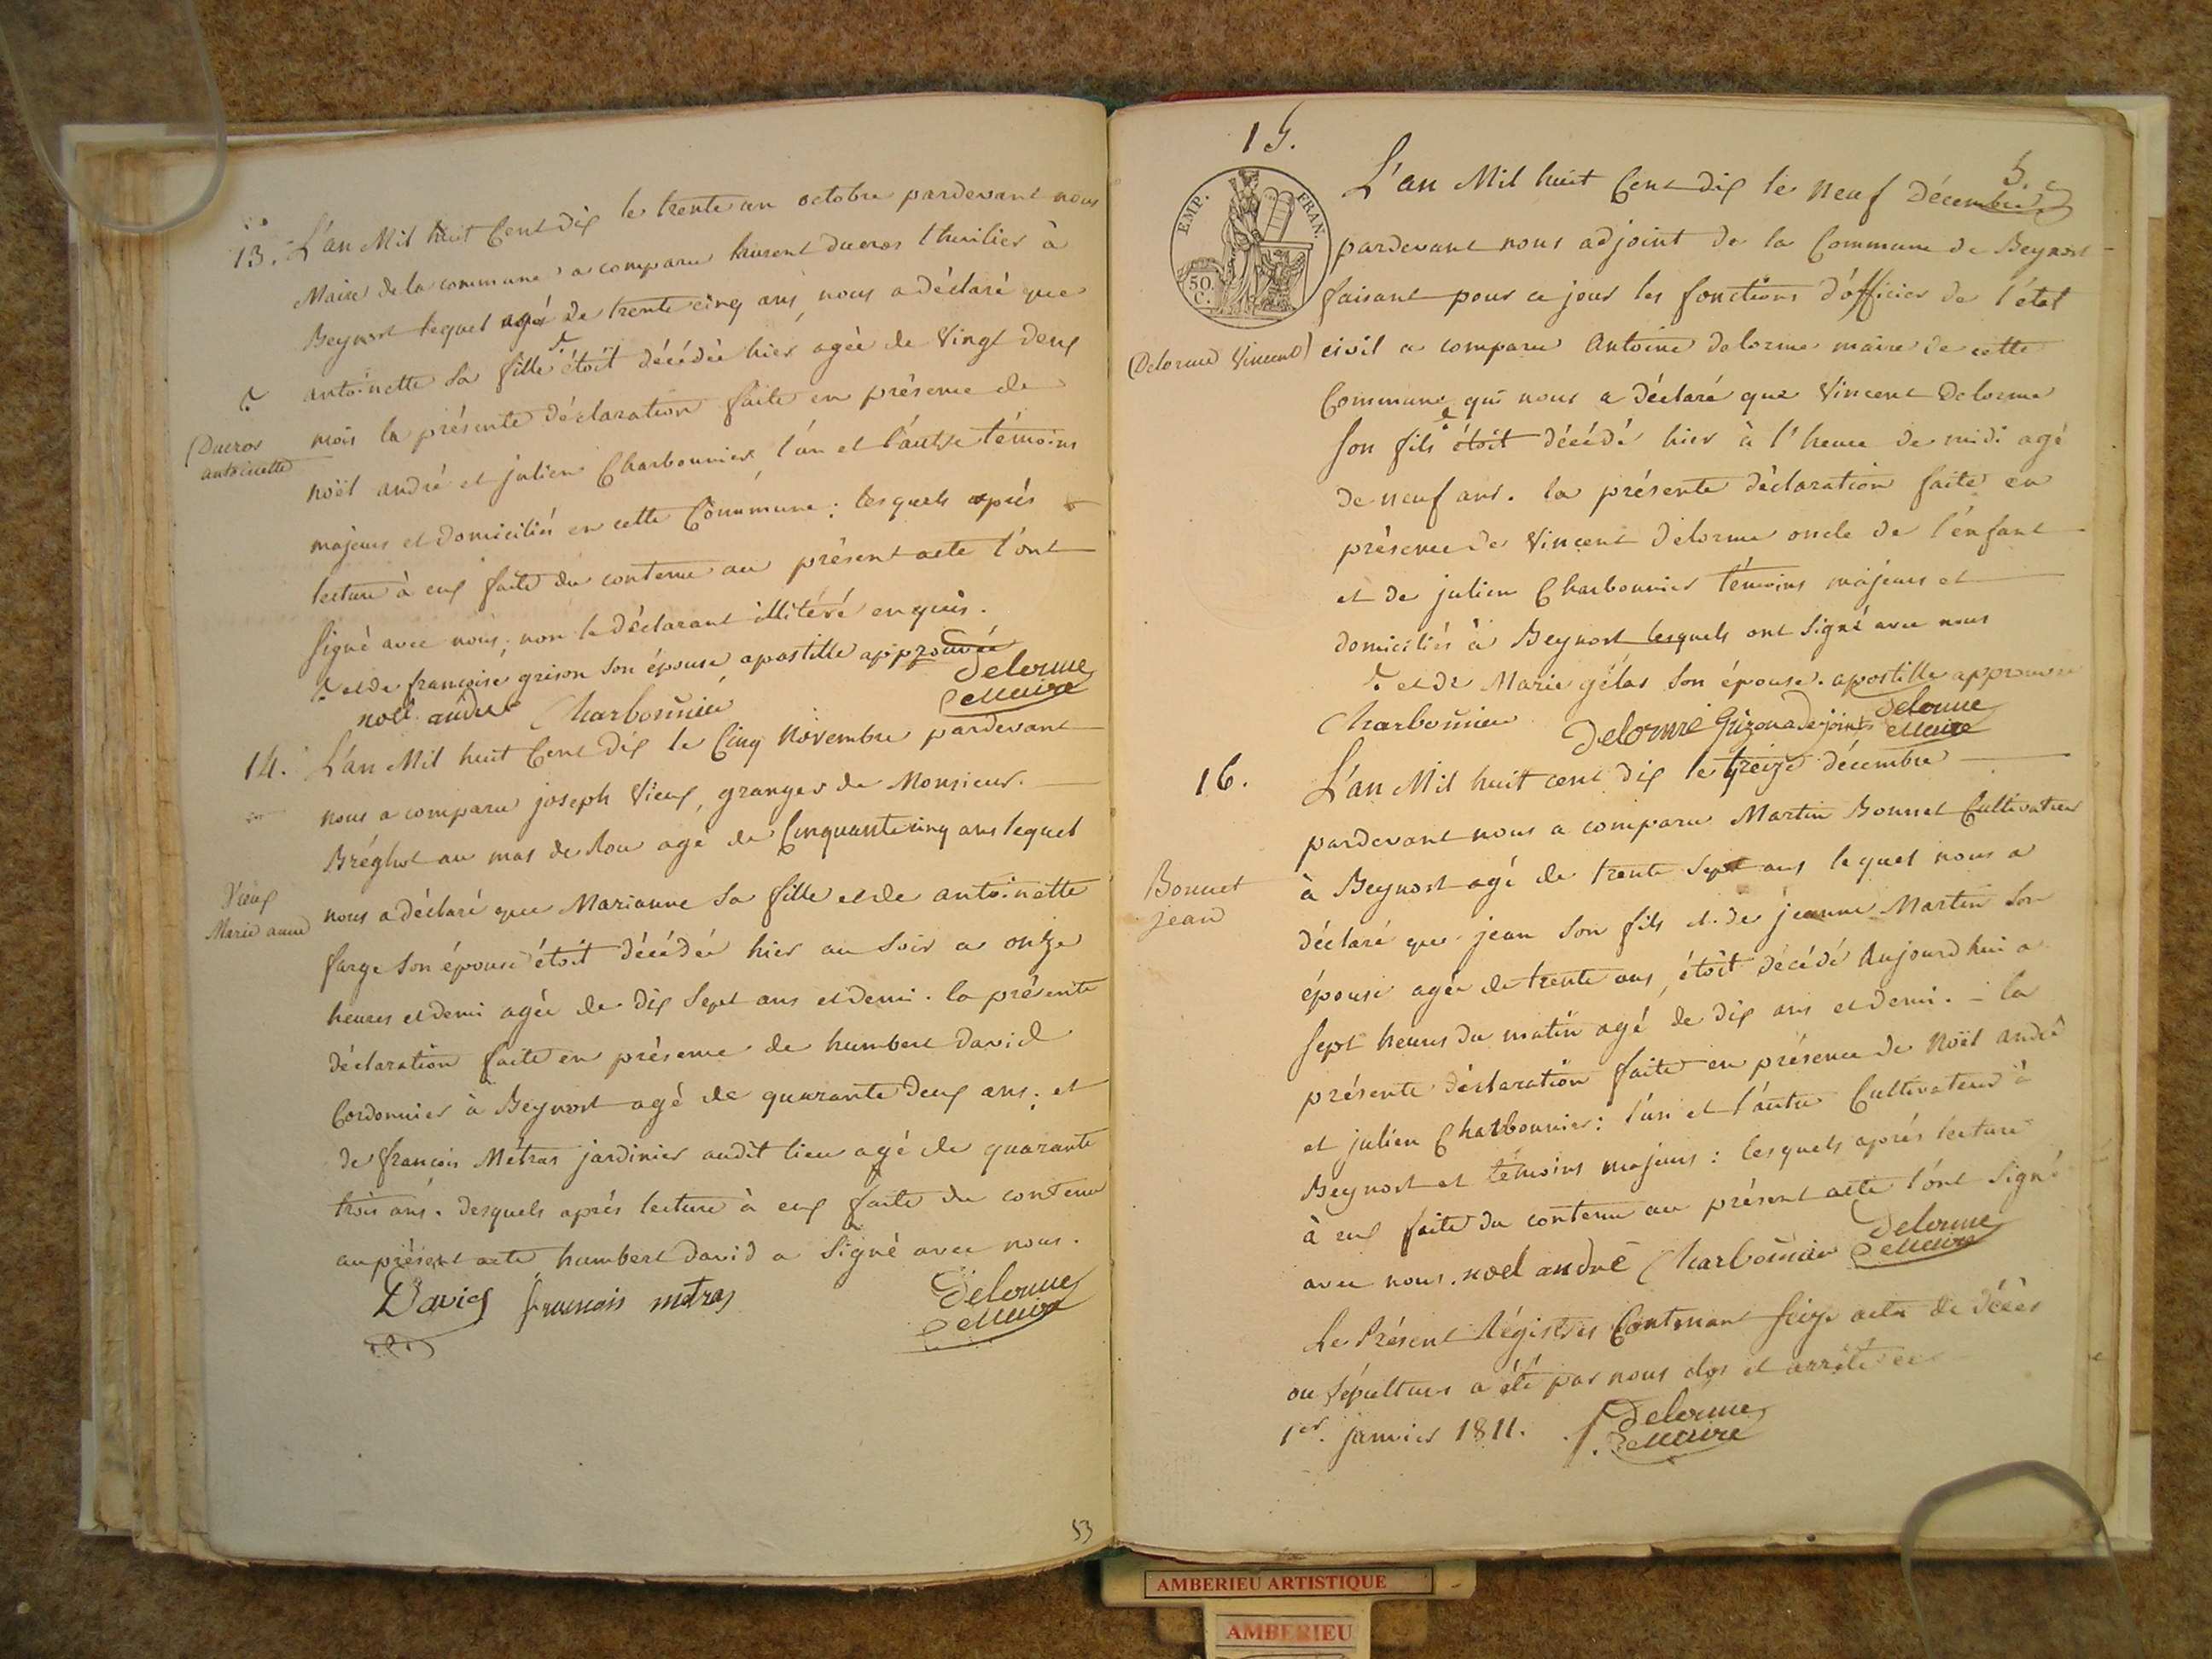 13. L'an Mil huit Cent dix le trente un octobre pardevant nous
Maire de la commune a comparu laurent ducros thuilier à
Beynost lequel agé de trente cinq ans, nous a déclaré que
antoinette sa fille étoit décédée hier agée de Vingt deux
Ducros
antoinette
mois la présente déclaration faite en présence de
noël andré et julien Charbonnier, l'un et l'autre témoins
majeurs et domiciliés en cette Commune : lesquels après
lecture à eux faite du contenu au présent acte l'ont
signé avec nous, non le déclarant illitéré enquis.
et de françoise grison son épouse apostille approuvée
noël andré Charbonnier Delorme
Maire
14. L'an Mil huit Cent dix le Cinq Novembre pardevant
nous a comparu joseph Vieux, granger de Monsieur
Bréghot au mas de Rou agé de Cinquante cinq ans lequel
Vieux
Marie anne
nous a déclaré que Marianne sa fille et de antoinette
farge son épouse étoit décédée hier au soir a onze
heures et demi agée de dix sept ans et demi. la présente
déclaration faite en présence de humbert david
Cordonnier à Beynost agé de quarante deux ans, et
de françois Métras jardinier audit lieu agé de quarante
trois ans. desquels après lecture à eux faite du contenu
au présent acte humbert david a signé avec nous.
David françois metras Delorme
Maire
53
15.
5.
EMP. FRAN.
50.
C.
L'an Mil huit Cent dix le neuf Décembre
pardevant nous adjoint de la Commune de Beynost
faisant pour ce jour les fonctions d'officier de l'état
Delorme Vincent
civil a comparu Antoine delorme maire de cette
Commune qui nous a déclaré que Vincent Delorme
son fils étoit décédé hier à l'heure de midi agé
de neuf ans. la présente déclaration faite en
présence de Vincent delorme oncle de l'enfant
et de julien Charbonnier témoins majeurs et
domiciliés à Beynost lesquels ont signé avec nous
et de Marie gélas son épouse. apostille approuvée
Charbonnier Delorme Grizon adejoint Delorme
Maire
16. L'an Mil huit cent dix le treize décembre
pardevant nous a comparu Martin Bonnet Cultivateur
Bonnet
jean
à Beynost agé de trente sept ans lequel nous a
déclaré que jean son fils et de jeanne Martin son
épouse agée de trente ans, étoit décédé Aujourd'hui a
sept heures du matin agé de dix ans et demi. - la
présente déclaration faite en présence de Noël andré
et julien Charbonnier : l'un et l'autre Cultivateurs à
Beynost et témoins majeurs : lesquels après lecture
à eux faite du contenu au présent acte l'ont signé
avec nous. noel andré Charbonnier Delorme
Maire
Le Présent Régistre Contenant seize acte de décès
ou sépultures a été par nous clos et arrêté ce
1er. janvier 1811. Delorme
Maire
AMBERIEU ARTISTIQUE
AMBERIEU